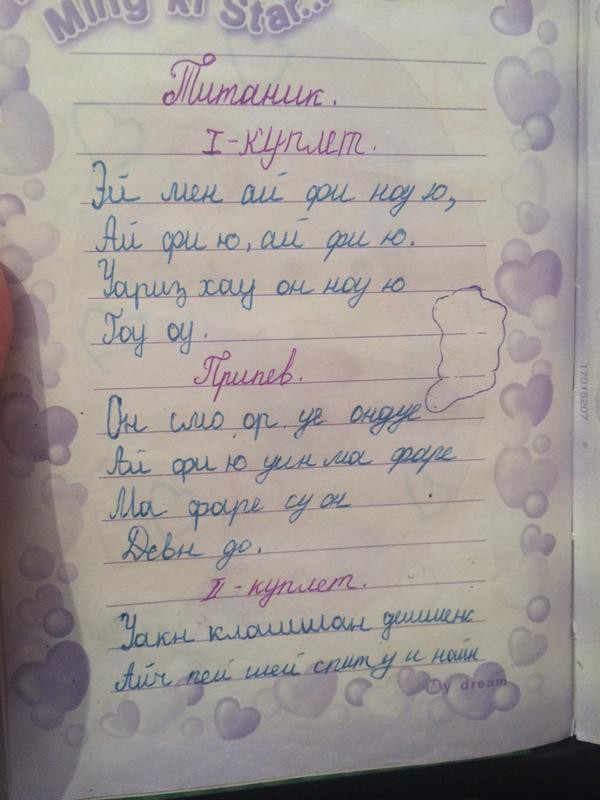 Ming ki Star...
Титаник.
I-куплет.
Эй мен ай фи ноу ю,
Ай фи ю, ай фи ю.
Уариз хау он ноу ю
Гоу оу.
Припев.
Он смо ор уе ондуе
Ай фи ю уин ма фаре
Ма фаре су он
Девн до.
II-куплет.
Уакн клашилан дешиенс
Айч пей шей спиту и найн
My dream
17015207